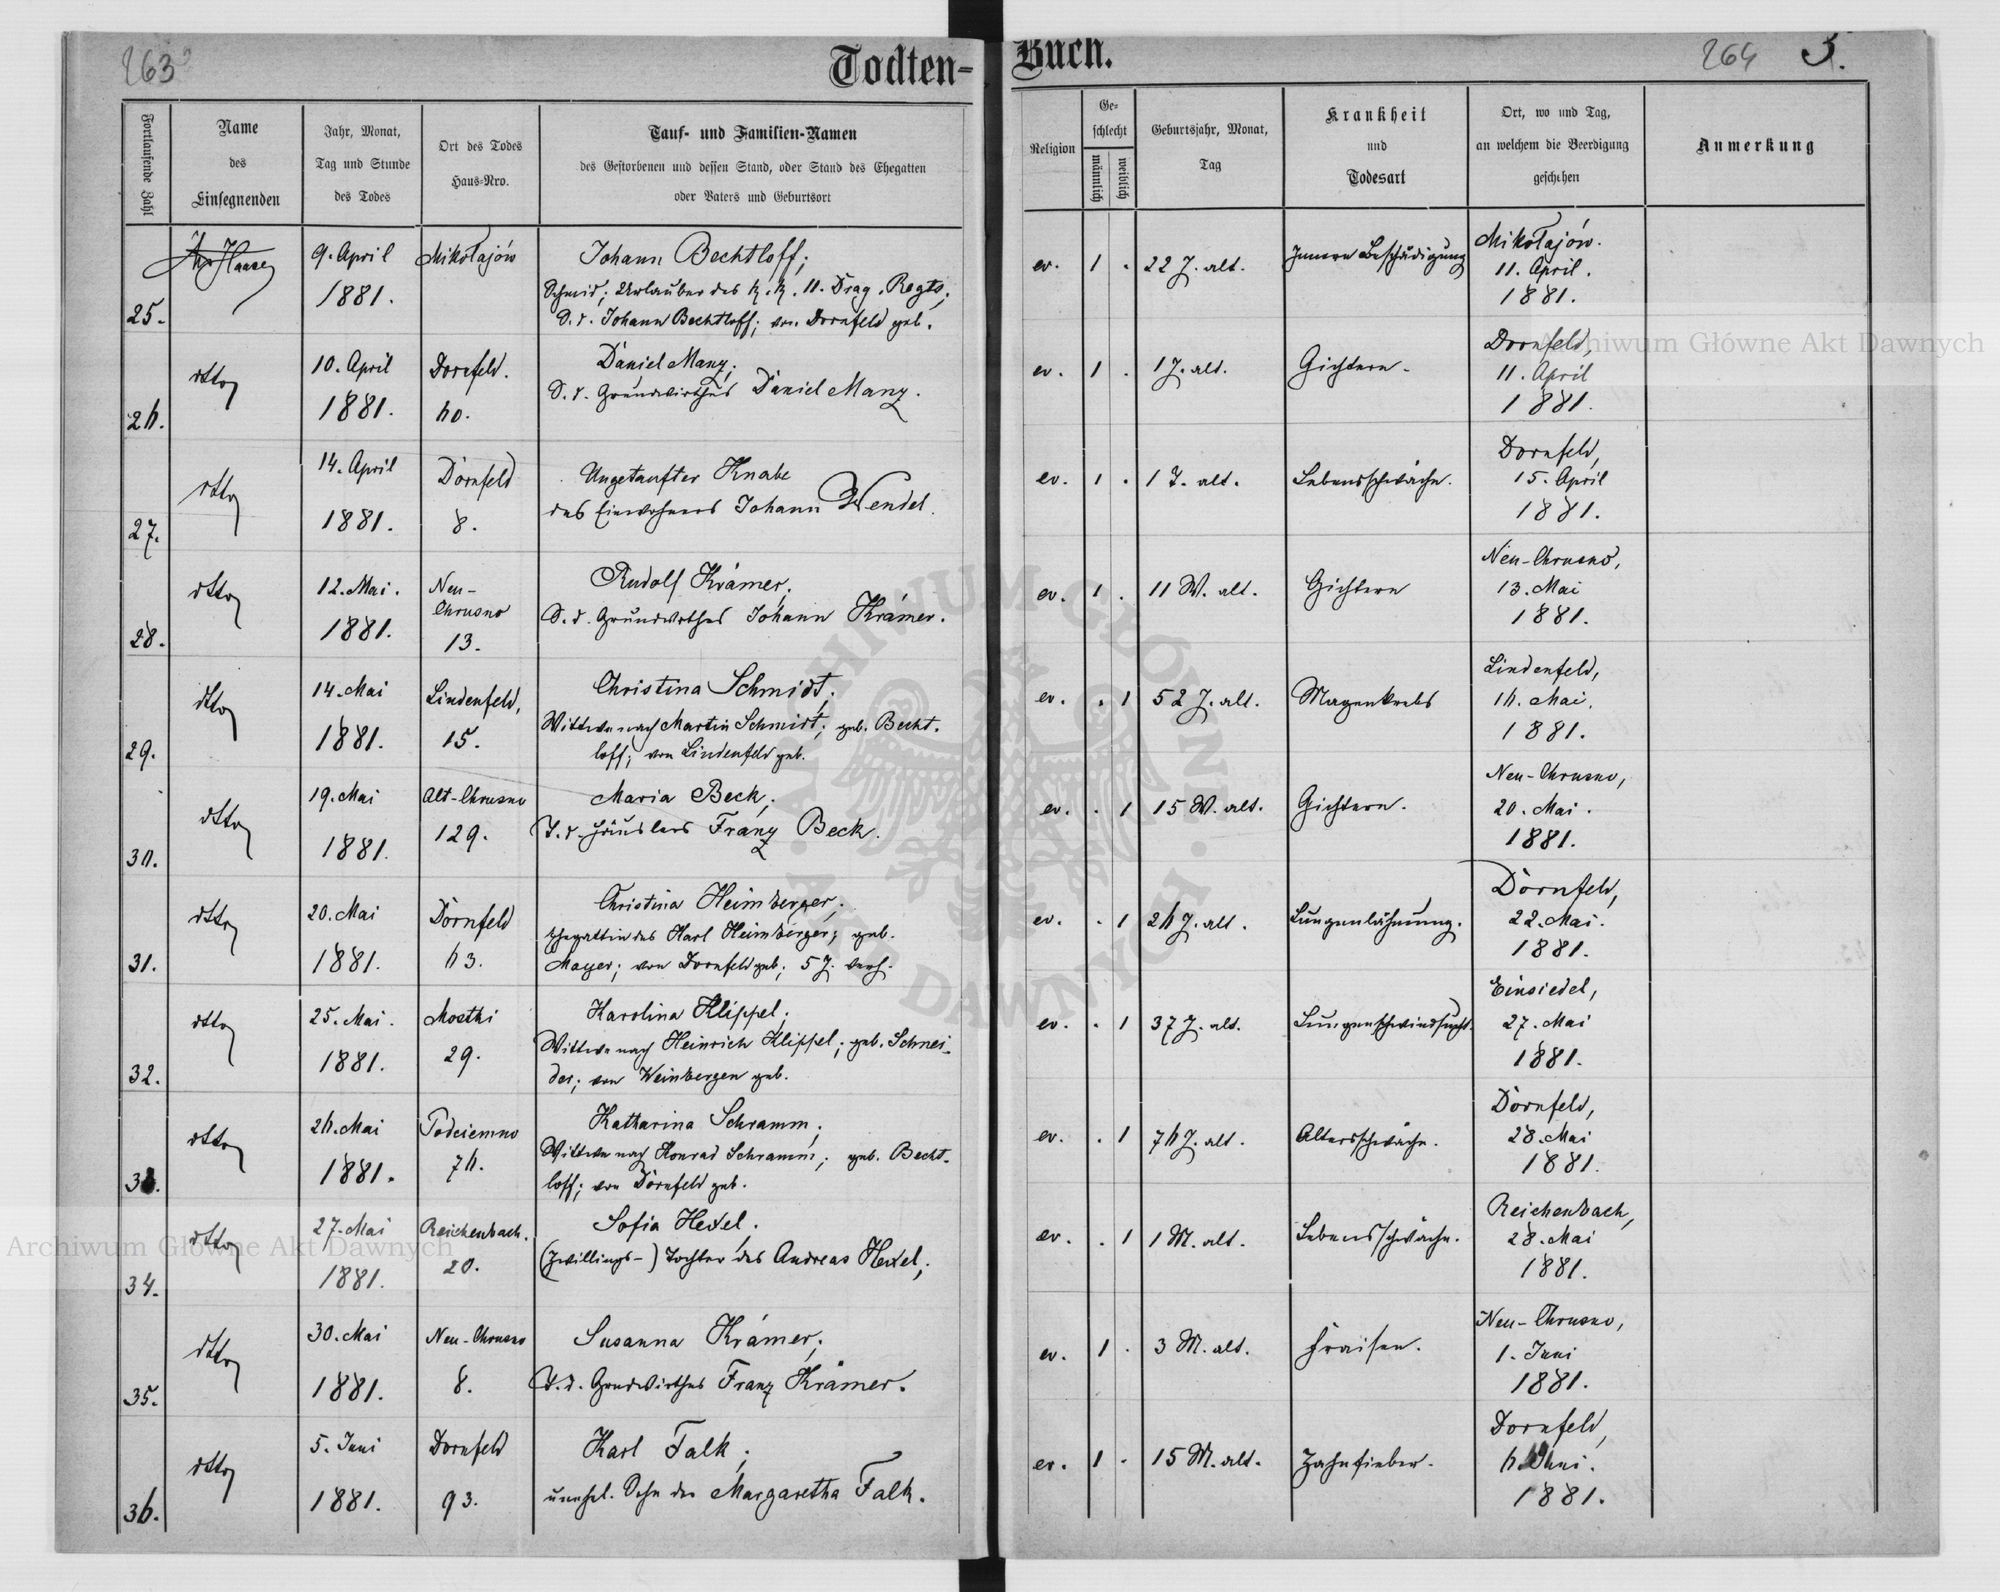 263
Todten-
Buch.
264 5.
Fortlaufende Zahl
Name
des
Einsegnenden
Jahr, Monat,
Tag und Stunde
des Todes
Ort des Todes
Haus-Nro.
Tauf- und Familien-Namen
des Gestorbenen und dessen Stand, oder Stand des Ehegatten
oder Vaters und Geburtsort
Religion
Ge-
schlecht
männlich
weiblich
Geburtsjahr, Monat,
Tag
Krankheit
und
Todesart
Ort, wo und Tag,
an welchem die Beerdigung
geschehen
Anmerkung
25.
Haase
9. April
1881.
Mikołajów
Johann Bechtloff;
Schmid; Urlauber des k. k. 11. Drag. Regts;
S. d. Johann Bechtloff; von Dornfeld geb.
ev. 1 . 22 J. alt.
Innere Beschädigung
Mikołajów.
11. April.
1881.
26.
dtto
10. April
1881.
Dornfeld.
60.
Daniel Manz;
S. d. Grundwirthes Daniel Manz.
ev. 1 . 1 J. alt.
Gichtern.
Dornfeld,
11. April
1881.
27.
dtto
14. April
1881.
Dornfeld
8.
Ungetaufter Knabe
des Einwohners Johann Wendel.
ev. 1 . 1 T. alt.
Lebensschwäche.
Dornfeld,
15. April
1881.
28.
dtto
12. Mai.
1881.
Neu-
Chrusno
13.
Rudolf Krämer;
S. d. Grundwirthes Johann Krämer.
ev. 1 . 11 W. alt.
Gichtern
Neu-Chrusno,
13. Mai
1881.
29.
dtto
14. Mai
1881.
Lindenfeld,
15.
Christina Schmidt;
Wittwe nach Martin Schmidt; geb. Becht-
loff; von Lindenfeld geb.
ev. . 1 52 J. alt.
Magenkrebs
Lindenfeld,
16. Mai.
1881.
30.
dtto
19. Mai
1881.
Alt-Chrusno
129.
Maria Beck;
T. d. Häuslers Franz Beck.
ev. . 1 15 W. alt.
Gichtern.
Neu-Chrusno,
20. Mai.
1881.
31.
dtto
20. Mai
1881.
Dornfeld
63.
Christina Heimberger;
Ehegattin des Karl Heimberger; geb.
Mayer; von Dornfeld geb; 5 J. verh.
ev. . 1 26 J. alt.
Lungenlähmung.
Dornfeld,
22. Mai.
1881.
32.
dtto
25. Mai.
1881.
Mostki
29.
Karolina Klippel;
Wittwe nach Heinrich Klippel; geb. Schnei-
der; von Weinbergen geb.
ev. . 1 37 J. alt.
Lungenschwindsucht.
Einsiedel,
27. Mai
1881.
33.
dtto
26. Mai
1881.
Podciemno
76.
Katharina Schramm;
Wittwe nach Konrad Schramm; geb. Becht-
loff; von Dornfeld geb.
ev. . 1 76 J. alt.
Altersschwäche.
Dornfeld,
28. Mai
1881.
34.
dtto
27. Mai
1881.
Reichenbach.
20.
Sofia Hexel.
(Zwillings-) Tochter des Andreas Hexel;
ev. . 1 1 M. alt.
Lebensschwäche.
Reichenbach,
28. Mai
1881.
35.
dtto
30. Mai
1881.
Neu-Chrusno
8.
Susanna Krämer;
T. d. Grundwirthes Franz Krämer.
ev. 1 . 3 M. alt.
Fraisen.
Neu-Chrusno,
1. Juni
1881.
36.
dtto
5. Juni
1881.
Dornfeld
93.
Karl Falk;
unehel. Sohn der Margaretha Falk.
ev. 1 . 15 M. alt.
Zahnfieber.
Dornfeld,
6. Juni.
1881.
Archiwum Główne Akt Dawnych
Archiwum Główne Akt Dawnych
ARCHIWUM GŁÓWNE
AKT DAWNYCH